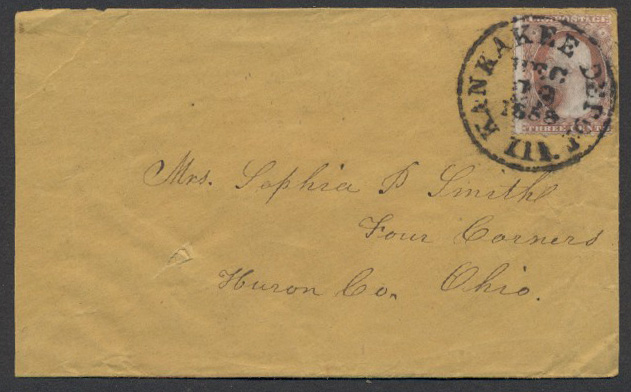 U.S. POSTAGE
THREE CENTS
KANKAKEE DEPOT ILL
DEC
1858
Mrs. Sophia P Smith
Four Corners
Huron Co. Ohio.